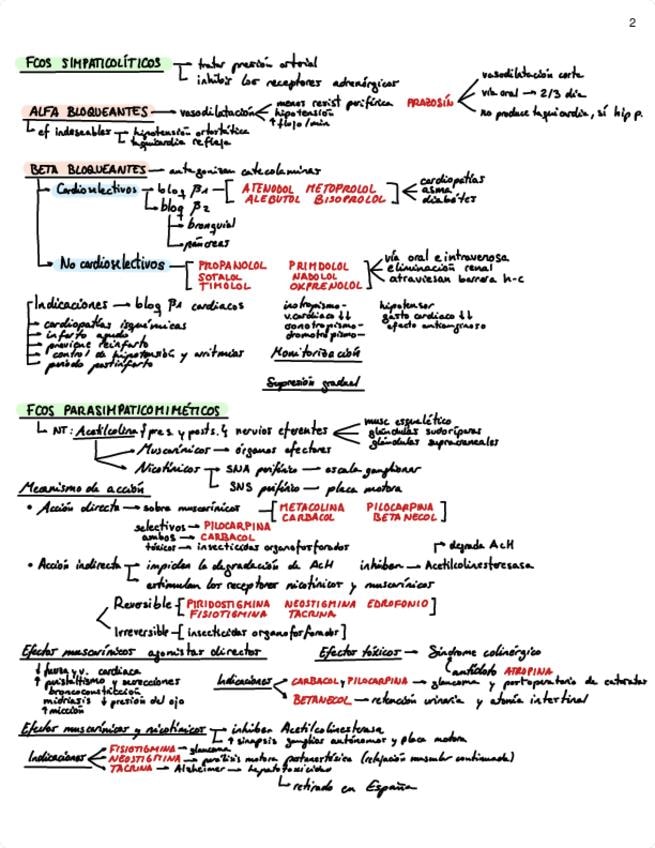 2
FCOS SIMPATICOLÍTICOS
tratar presión arterial
inhibir los receptores adrenérgicos
ALFA BLOQUEANTES
vasodilatación
menos resist periférica
hipotensión
↑ flujo/min
PRAZOSÍN
vasodilatación corta
vía oral → 2/3 día
no produce taquicardia, sí hip p.
ef indeseables
hipotensión ortostática
taquicardia refleja
BETA BLOQUEANTES — antagonizan catecolaminas
Cardioselectivos
bloq β1
ATENOLOL METOPROLOL
ALEBUTOL BISOPROLOL
cardiopatías
asma
diabetes
bloq β2
bronquial
páncreas
No cardioselectivos
PROPANOLOL PRIMDOLOL
SOTALOL NADOLOL
TIMOLOL OXPRENOLOL
vía oral e intravenosa
eliminación renal
atraviesan barrera h-c
Indicaciones → bloq β1 cardiacos
cardiopatías isquémicas
infarto agudo
previene reinfarto
control de hipotensión y arritmias
periodo postinfarto
inotropismo-
v.cardiaca ↓↓
cronotropismo-
dromotropismo-
hipotensor
gasto cardiaco ↓↓
efecto antianginoso
Monitorización
Supresión gradual
FCOS PARASIMPATICOMIMÉTICOS
NT: Acetilcolina pres. y posts. nervios eferentes
musc esquelético
glándulas sudoríparas
glándulas suprarrenales
Muscarínicos → órganos efectores
Nicotínicos
SNA periférico → escala ganglionar
SNS periférico → placa motora
Mecanismo de acción
• Acción directa → sobre muscarínicos
METACOLINA PILOCARPINA
CARBACOL BETANECOL
selectivos → PILOCARPINA
ambos → CARBACOL
tóxicos → insecticidas organofosforados
• Acción indirecta
impiden la degradación de AcH
inhiben → Acetilcolinesterasa
degrada AcH
estimulan los receptores nicotínicos y muscarínicos
Reversible
PIRIDOSTIGMINA NEOSTIGMINA EDROFONIO
FISIOTIGMINA TACRINA
Irreversible [insecticidas organofosforados]
Efectos muscarínicos agonistas directos
↓ fuerza y v. cardiaca
↑ peristaltismo y secreciones
broncoconstricción
midriasis ↓ presión del ojo
↑ micción
Efectos tóxicos → Síndrome colinérgico
antídoto ATROPINA
Indicaciones
CARBACOL y PILOCARPINA → glaucoma y postoperatorio de cataratas
BETANECOL → retención urinaria y atonía intestinal
Efectos muscarínicos y nicotínicos
inhiben Acetilcolinesterasa
↑ sinapsis ganglios autónomos y placa motora
Indicaciones
FISIOTIGMINA → glaucoma
NEOSTIGMINA → parálisis motora postanestésica (relajación muscular continuada)
TACRINA → Alzheimer → hepatotoxicidad
retirado en España